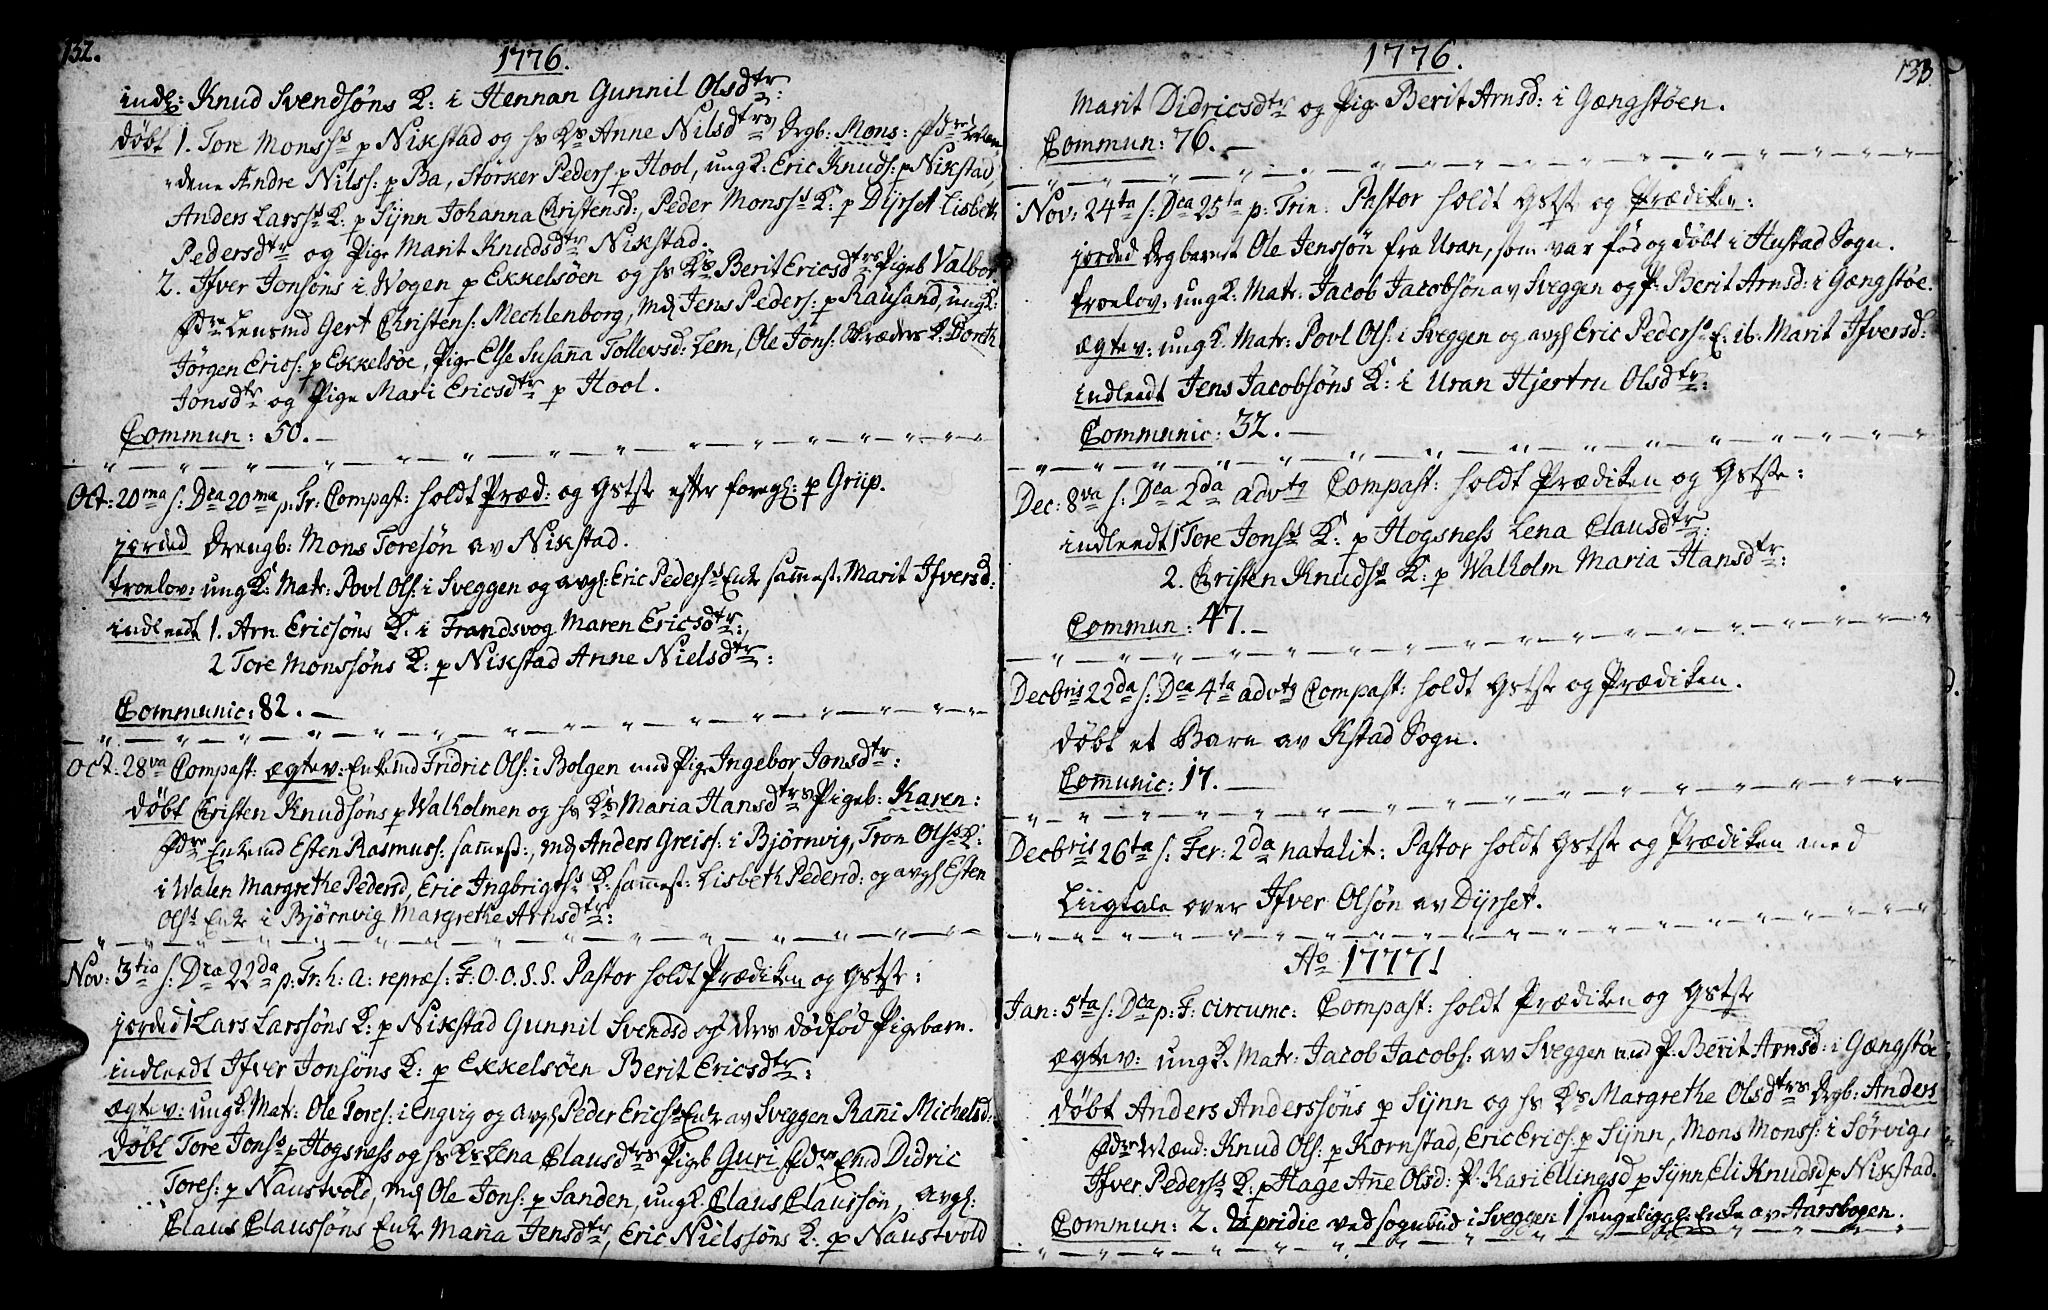 132.
1776.
indl: Knud Svendsøns K: i Hennan Gunnil Olsdtr:
døbt 1. Tore Monss p Nikstad og hs Ks Anne Nilsdtrs Drgb: Mons: Fdre
dene Andre Nilss: p Ba, Størker Peders p Hool, ungK: Eric Knuds: p Nikstad,
Anders Larss K: p Sÿnn Johanna Christensd:, Peder Monss K: p Dÿrset Lisbet
Pedersdtr og Pige Marit Knudsdtr Nikstad.
2. Ifver Jonsøns i Wogen p Ekkelsöen og hs Ks Berit Ericsdtrs Pigeb Valbor
Fdre Lensmd Gert Christens: Mechlenborg, md Jens Peders: p Rausand, ungK:
Jørgen Erics: p Ekkelsøe, Pige Else Susana Tollevsd: Lem, Ole Jons: Skræders K: Dorth
Jonsdtr og Pige Mari Ericsdtr p Hool.
Commun: 50.
Oct: 20ma s: Dca 20ma p: Tr: Compast: holdt Præd: og Gstste efter foregl: p Griip.
jorded Drengb: Mons Toresøn av Nikstad.
troelov: ungK: Matr: Povl Ols: i Sveggen og avgl: Eric Peders Enke samest: Marit Ifversd:
indleedt 1. Arn Ericsøns K: i Frandsvog Maren Ericsdtr:
2 Tore Monssøns K: p Nikstad Anne Nielsdtr:
Communic: 82.
Oct: 28va Compast: ægtev: Enkemd Fridric Ols: i Bolgen med Pige Ingebor Jonsdtr:
døbt Christen Knudsøns p Walholmen og hs Ks Maria Hansdtrs Pigeb: Karen:
Fdre Enkemd Esten Rasmuss: samest:, md Anders Greiss: i Bjørnvig, Tron Ols K:
i Walen Margrethe Pedersd, Eric Ingbrigts K: samest: Lisbeth Pedersd: og avgl Esten
Ols Enke i Bjørnvig Margrethe Arnsdtr:
Nov: 3tia s: Dca 22da p: Tr: h: a: repræs: F: O. O. S. S. Pastor holdt Prædiken og Gstste:
jorded 1 Lars Larssøns K: p Nikstad Gunnil Svendsd og ders dødfød Pigebarn.
indleedt Ifver Jonsøns K: p Ekkelsøen Berit Ericsdtr:
ægtev: ungK: Matr: Ole Tores: i Engvig og avgl Peder Erics Enke av Sveggen Rani Michelsd:
døbt Tore Jons p Hogsness og hs Ks Lena Clausdtrs Pigb Guri Fdre Emd Didric
Tores: p Naustvold, md Ole Jons: p Sanden, ungK: Claus Claussøn, avgl:
Claus Claussøns Enke Maria Jensdtr, Eric Nielssøns K: p Naustvold
133.
1776.
Marit Didricsdtr og Pige Berit Arnsd: i Gængstøen.
Commun: 76.
Nov: 24ta s: Dca 25ta p: Trin: Pastor holdt Gstste og Prædiken:
jorded Drgbarnet Ole Jenssøn fra Uran, som var fød og døbt i Hustad Sogn.
troelov: ungK: Matr: Jacob Jacobsøn av Sveggen og P: Berit Arnsd: i Gængstøe.
ægtev: ungK: Matr: Povl Ols: i Sveggen og avgl Eric Peders E: ib: Marit Ifversd:
indleedt Jens Jacobsøns K: i Uran Hjertru Olsdtr:
Communic: 32.
Dec: 8va s: Dca 2da advts Compast: holdt Prædiken og Gstste:
indleedt 1 Tore Jons K: p Hogsness Lena Clausdtr:
2. Christen Knuds K: p Walholm Maria Hansdtr:
Commun: 47.
Decbris 22da s: Dca 4ta advts Compast: holdt Gstste og Prædiken.
døbt et Barn av Kstad Sogn.
Comunic: 17.
Decbris 26ta s: Fer: 2da natalit: Pastor holdt Gstste og Prædiken med
Liigtale over Ifver Olsøn av Dÿrset.
Ao 1777!
Jan: 5ta s: Dca p: F: circumc: Compast: holdt Prædiken og Gstste
ægtev: ungK: Matr: Jacob Jacobs: av Sveggen med P: Berit Arnsd: i Gængstøe
døbt Anders Anderssøns p Sÿnn og hs Ks Margrethe Olsdtrs Drgb: Anders
Fdre Mænd: Knud Ols: p Kornstad, Eric Erics: p Sÿnn, Mons Monss: i Sørvig,
Ifver Peders K: p Hage Ane Olsd: P: Kari Ellingsd p Sÿnn, Eli Knudsd p Nikstad.
Commun: 2. pridie ved sognebud i Sveggen 1 sengeligge Enke av Aarsbogen.